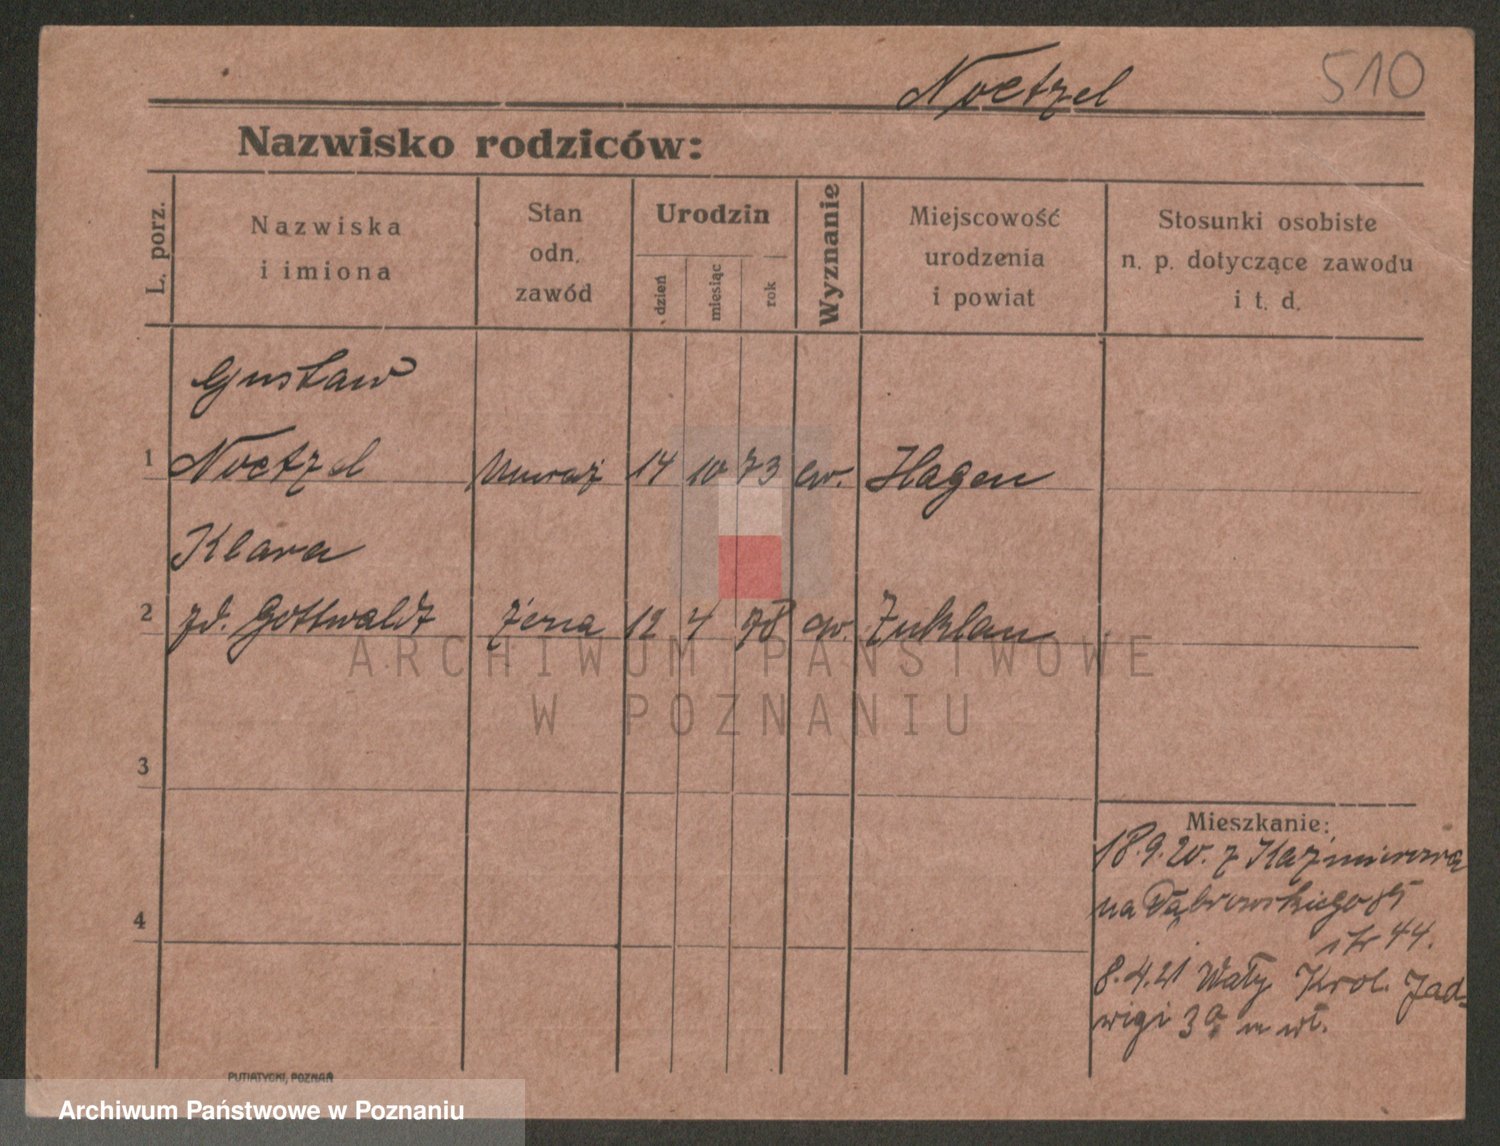 Noetzel 510
Nazwisko rodziców:
L. porz.
Nazwiska
i imiona
Stan
odn.
zawód
Urodzin
dzień
miesiąc
rok
Wyznanie
Miejscowość
urodzenia
i powiat
Stosunki osobiste
n. p. dotyczące zawodu
i t. d.
Gustaw
1 Noetzel 14 10 73 ew. Hagen
Klara
2 zd. Gottwaldt żona 12 4 78 ew.
ARCHIWUM PAŃSTWOWE
W POZNANIU
3
Mieszkanie:
18.9.20. z Kaźmierza
na Dąbrowskiego 85
4
44.
8.4.21 Wały Krol. Jad-
wigi 3a m wł.
PUTIATYCKI, POZNAŃ
Archiwum Państwowe w Poznaniu